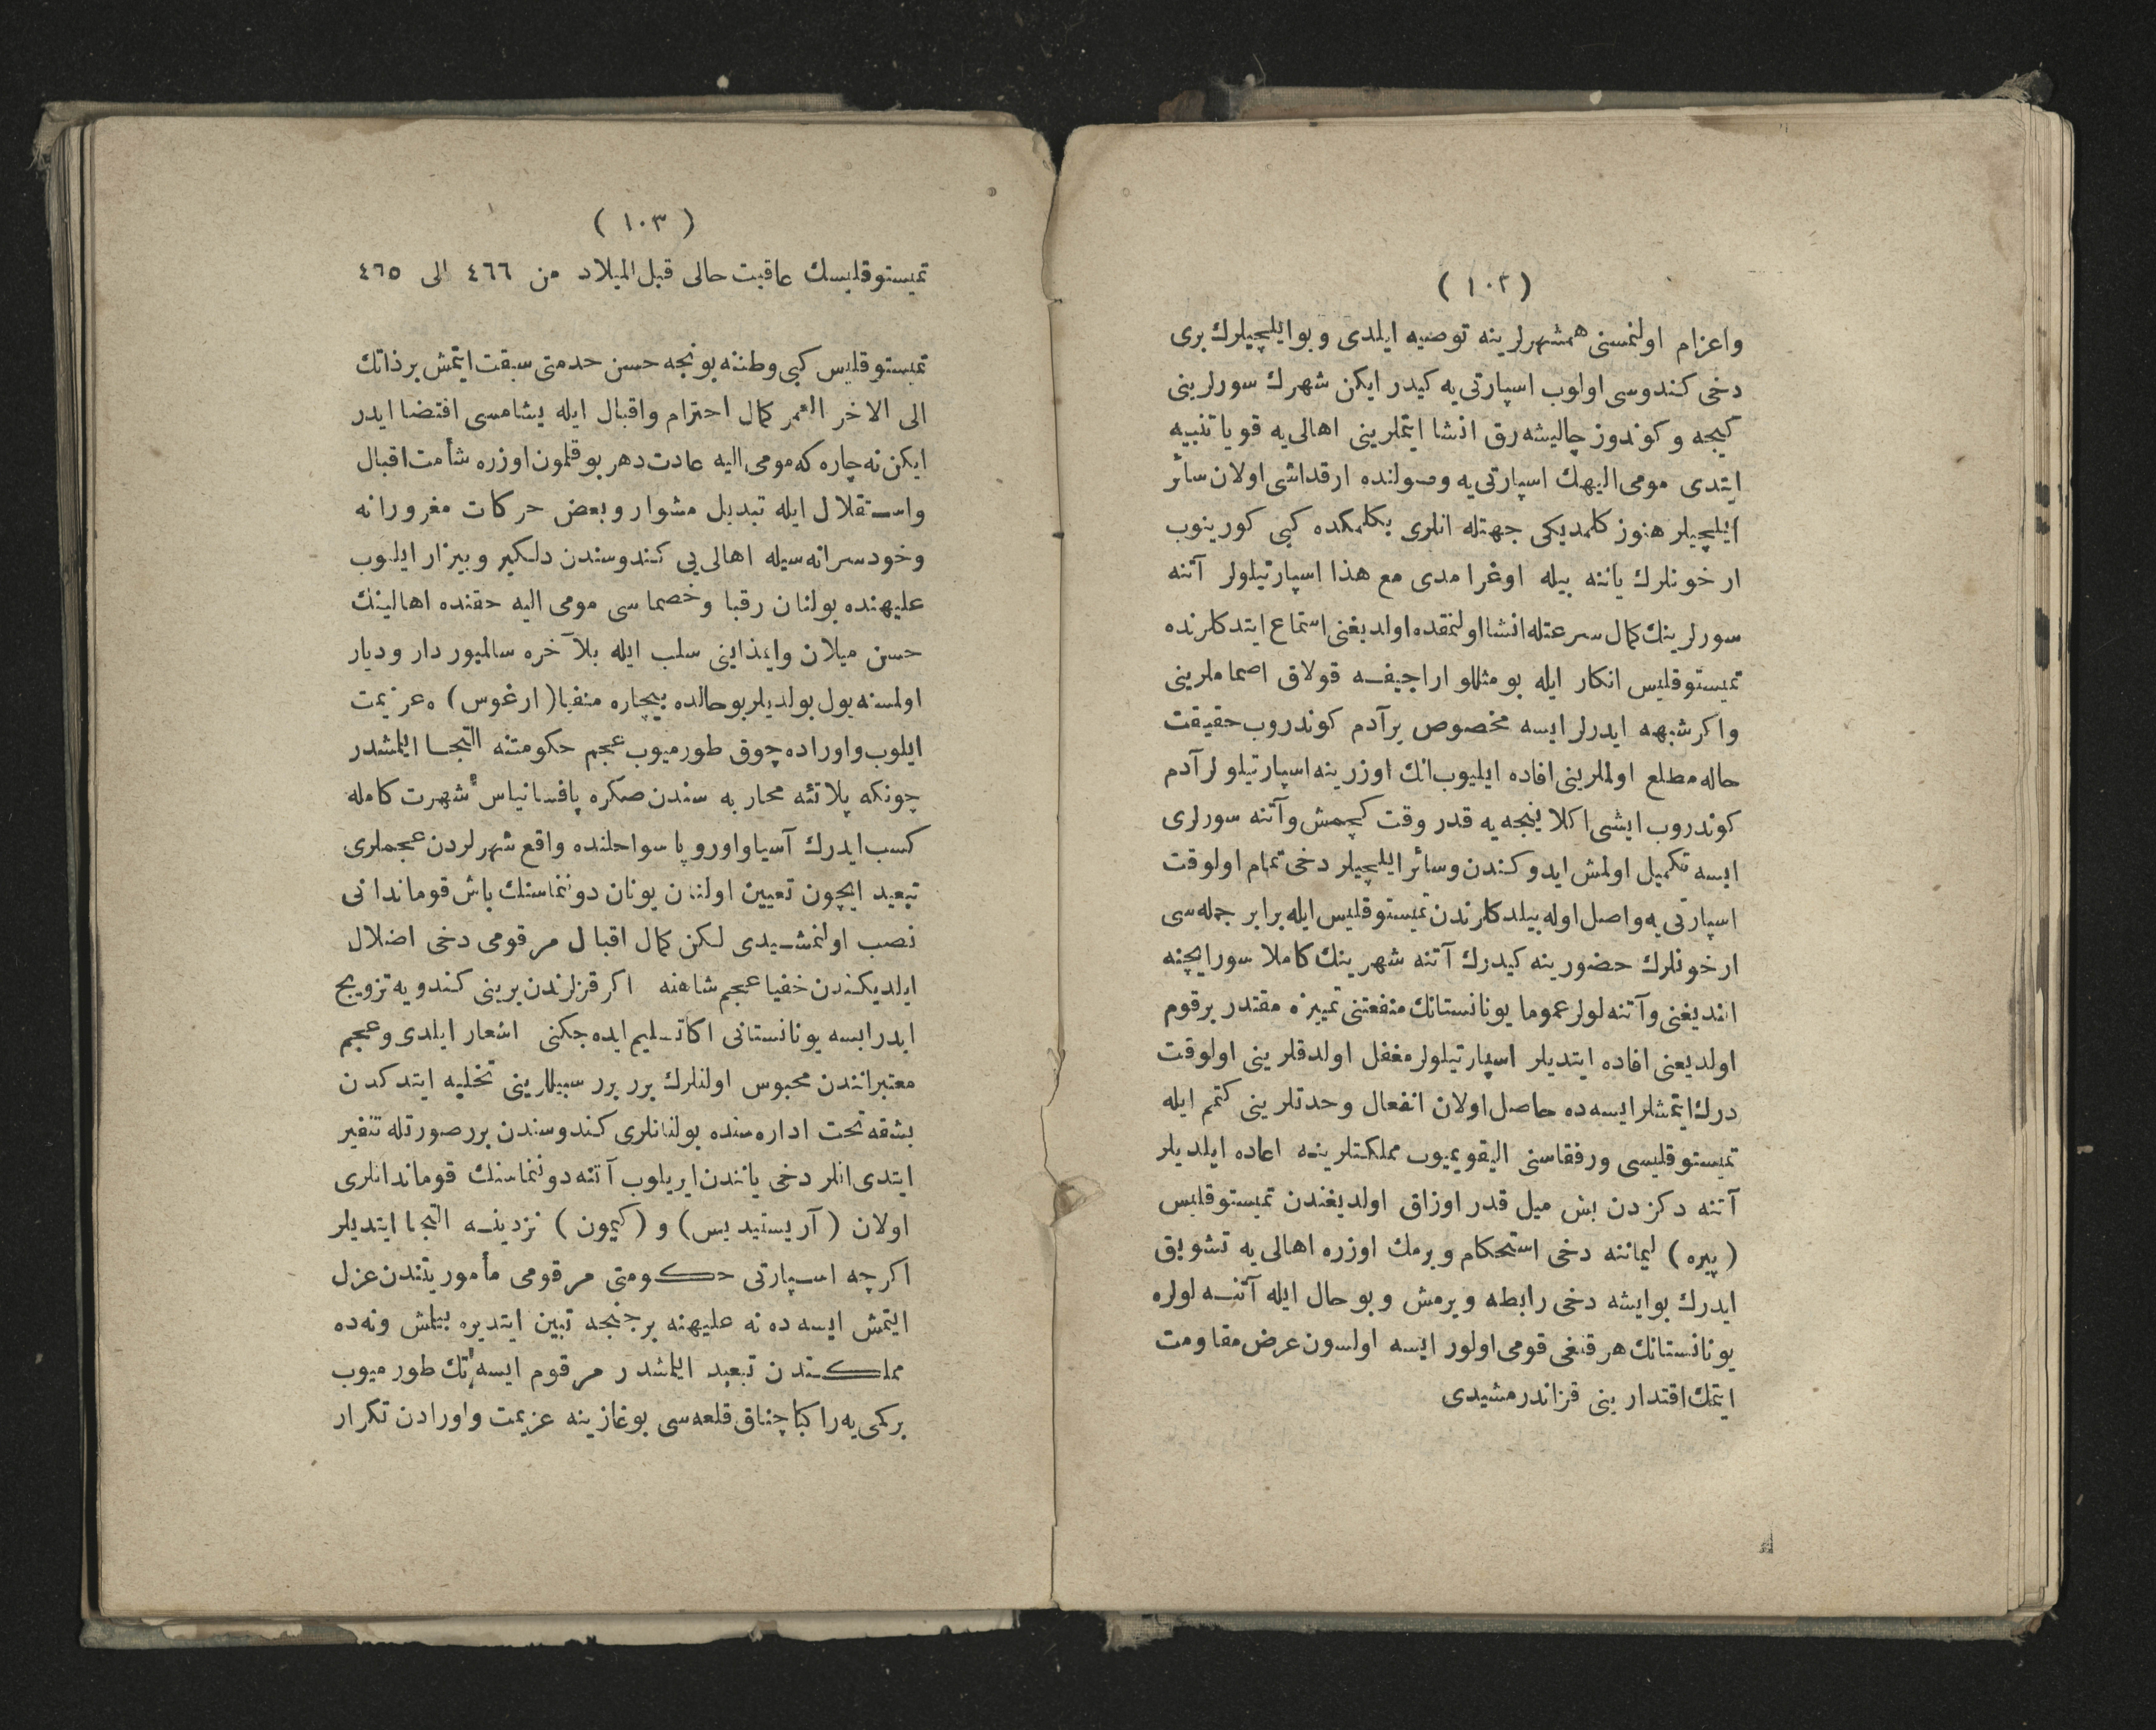 (١٠٢)
واعزام اولنمسنی همشهرلرینه توصیه ایلدی و بو ایلچیلرك بری
دخی کندوسی اولوب اسپارتی‌یه کیدر ایکن شهرك سورلرینی
کیجه و کوندوز چالیشه‌رق انشا ایتملرینی اهالی‌یه قویا تنبیه
ایتدی مومی الیهك اسپارتی‌یه وصولنده ارقداشی اولان سائر
ایلچیلر هنوز کلمدیکی جهتله انلری بکلمکده کبی کورینوب
ارخونلرك یاننه بیله اوغرامدی مع هذا اسپارتیلولر آتنه
سورلرینك کمال سرعتله انشا اولنمقده اولدیغنی استماع ایتدکلرنده
تمیستوقلیس انکار ایله بو مثللو اراجیفه قولاق اصماملرینی
واکر شبهه ایدرلر ایسه مخصوص برآدم کوندروب حقیقت
حاله مطلع اولملرینی افاده ایلیوب انك اوزرینه اسپارتیلولر آدم
کوندروب ایشی اکلاینجه‌یه قدر وقت کچمش وآتنه سورلری
ایسه تکمیل اولمش ایدوکندن وسائر ایلچیلر دخی تمام اولوقت
اسپارتی‌یه واصل اوله بیلدکلرندن تمیستوقلیس ایله برابر جمله‌سی
ارخونلرك حضورینه کیدرك آتنه شهرینك کاملا سور ایچنه
الندیغنی وآتنه‌لولر عموما یونانستانك منفعتنی تمییزه مقتدر برقوم
اولدیعنی افاده ایتدیلر اسپارتیلولر مغفل اولدقلرینی اولوقت
درك ایتمشلر ایسه‌ده حاصل اولان انفعال وحدتلرینی کتم ایله
تمیستوقلیسی ورفقاسنی الیقویمیوب مملکتلرینه اعاده ایلدیلر
آتنه دکزدن بش میل قدر اوزاق اولدیغندن تمیستوقلیس
(پیره) لیماننه دخی استحکام ویرمك اوزره اهالی‌یه تشویق
ایدرك بوایشه دخی رابطه ویرمش و بو حال ایله آتنه‌لولره
یونانستانك هر قنغی قومی اولور ایسه اولسون عرض مقاومت
ایتمك اقتدارینی قزاندرمشیدی
(١٠٣)
تمیستوقلیسك عاقبت حالی قبل المیلاد من ٤٦٦ الی ٤٦٥
تمیستوقلیس کبی وطننه بونجه حسن خدمتی سبقت ایتمش برذاتك
الی الاخر العمر کمال احترام واقبال ایله یشامسی اقتضا ایدر
ایکن نه چاره که مومی الیه عادت دهر بوقلمون اوزره شأمت اقبال
واستقلال ایله تبدیل مشوار وبعض حرکات مغرورانه
وخودسرانه‌سیله اهالی‌یی کندوسندن دلکیر وبیزار ایلیوب
علیهنده بولنان رقبا وخصماسی مومی الیه حقنده اهالینك
حسن میلان وانجذابنی سلب ایله بلآخره سالمیور دار ودیار
اولمسنه یول بولدیلر بوحالده بیچاره منفیا (ارغوس) ه عزیمت
ایلوب واوراده چوق طورمیوب عجم حکومتنه التجا ایلمشدر
چونکه پلاتئه محاربه سندن صکره پافسانیاس شهرت کامله
کسب ایدرك آسیا واوروپا سواحلنده واقع شهرلردن عجملری
تبعید ایچون تعیین اولنان یونان دوننماسنك باش قوماندانی
نصب اولنمشیدی لکن کمال اقبال مرقومی دخی اضلال
ایلدیکندن خفیا عجم شاهنه اکر قزلرندن برینی کندویه تزویج
ایدرایسه یونانستانی اکا تسلیم ایده‌جکنی اشعار ایلدی وعجم
معتبرانندن محبوس اولنلرك برر برر سبیللارینی تخلیه ایتدکدن
بشقه تحت اداره‌سنده بولنانلری کندوسندن بررصورتله تنفیر
ایتدی انلر دخی یانندن ایریلوب آتنه دوننماسنك قوماندانلری
اولان (آریستیدیس) و (کیمون) نزدینه التجا ایتدیلر
اکرچه اسپارتی حکومتی مرقومی مأموریتندن عزل
ایتمش ایسه‌ده نه علیهنه برجنحه تبین ایتدیره بیلمش ونه‌ده
مملکتدن تبعید ایلمشدر مرقوم ایسه تك طورمیوب
برکمی‌یه راکبا چناق قلعه‌سی بوغازینه عزیمت واورادن تکرار